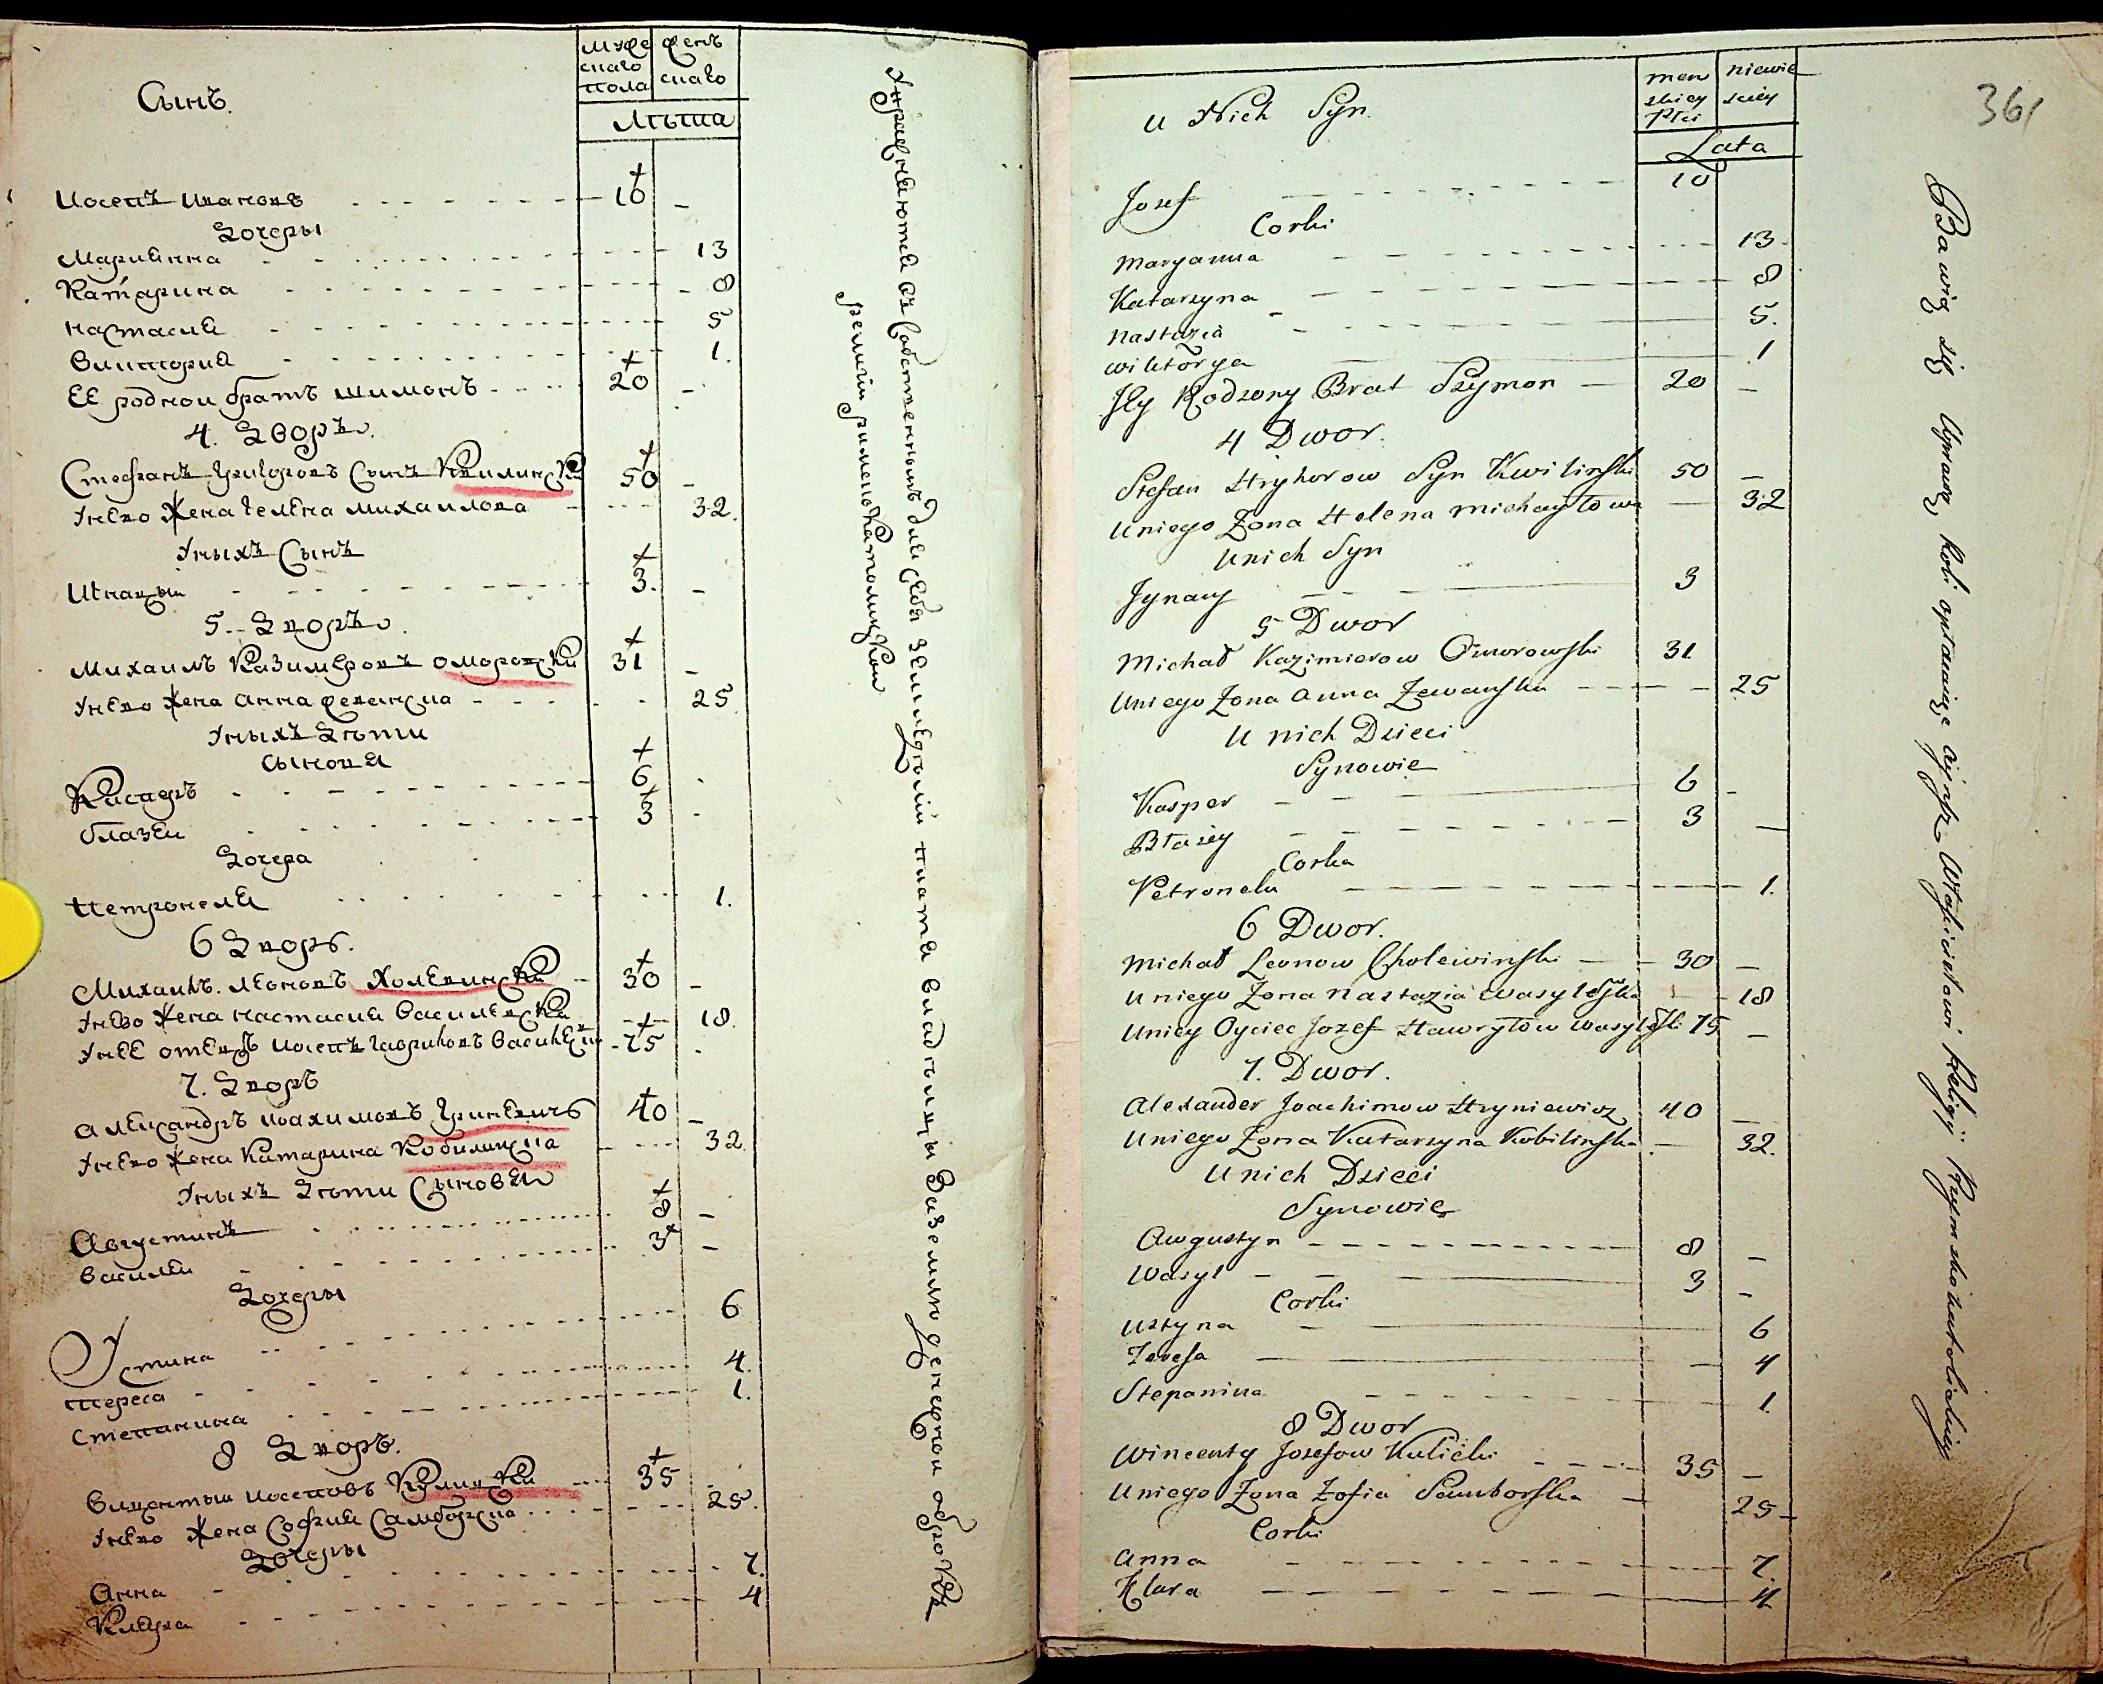 Сынъ.
муже
скаго
пола
жен
скаго
Лѣта
Иосепъ Ивановъ 10 –
Дочеры
Марианна 13
Катарина 8
Настасия 5
Виктория 1.
Ее родной братъ Шимонъ 20 –
4. Дворъ.
Стефанъ Григоровъ Сынъ Квилинский 50 –
У него жена Гелена Михаилова 32.
У ныхъ Сынъ
Игнацый 3. –
5. Дворъ.
Михаилъ Казимеровъ Оморовски 31 –
У него жена Анна 25
У ныхъ Дѣти
Сыновя
Каспер 6
Блазей 3
Дочера
Петронеля 1.
6 Дворъ.
Михаилъ Леоновъ Холевински 30 –
У него жена Настасия Василевска 18.
У нее отецъ Иосепъ Гавриловъ 75
7. Дворъ
Александръ Иоахимовъ Гриневичъ 40 –
У него жена Катарина Кобилинска 32.
У ныхъ Дѣти Сыновя
Августинъ 8 –
Василий 3 –
Дочеры
Устина 6
Тереса 4.
Степанина 1.
8 Дворъ.
Вицентый Иосеповъ Кулицки 35
У него жена София Самборска 25.
Дочеры
Анна 7.
Клара 4
Упражняются въ собственномъ для себя земледѣлии плата владѣлицы за землю денежной оброкъ
религии римско католицкой
361
u Nich Syn.
men
skiey
Płci
niewie
sciey
Lata
Jozef 10
Corki
Maryanna 13
Katarzyna 8
Nastazia 5.
Wiktorya 1
Jey Rodzony Brat Szymon 20 –
4 Dwor.
Stefan Hryhorow Syn Kwilinski 50 –
U niego Zona Helena Michayłowa 32
U nich Syn
Jgnacy 3
5 Dwor
Michał Kazimierow Omorowski 31
U niego Zona Anna Zewanska 25
U nich Dzieci
Synowie
Kasper 6 –
Błażey 3 –
Corka
Petronela 1.
6 Dwor.
Michał Leonow Cholewinski 30 –
U niego Zona Nastazia Wasylewska 18
U niey Oyciec Jozef Hawryłow 75 –
7. Dwor.
Alexander Joachimow Hryniewicz 40 –
U niego Zona Katarzyna Kobilinska 32.
U nich Dzieci
Synowie
Awgustyn 8 –
Wasyl 3 –
Corki
Ustyna 6
Teresa 4
Stepanina 1
8 Dwor
Wincenty Jozefow Kulicki 35 –
U niego Zona Zofia Samborska 25 –
Corki
Anna 7.
Klara 4
Bawią się Uprawą Roli opłacaiąc czynsz Właścicielowi Religij Rzymskokatolickiey